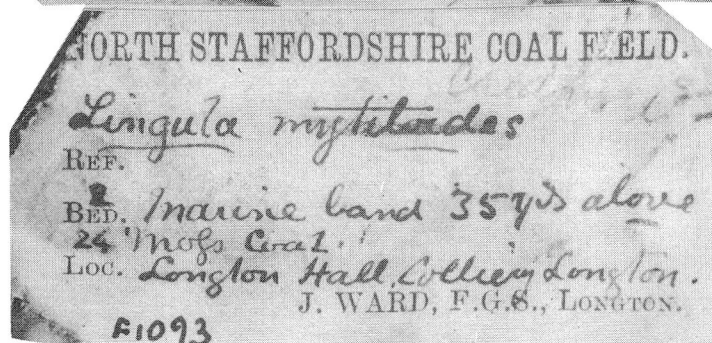 NORTH STAFFORDSHIRE COAL FIELD.
Lingula mytiloides
REF.
2
BED. Marine band 35 yds above
24 Moss Coal.
LOC. Longton Hall, Colliery Longton.
J. WARD, F.G.S., LONGTON.
F1093